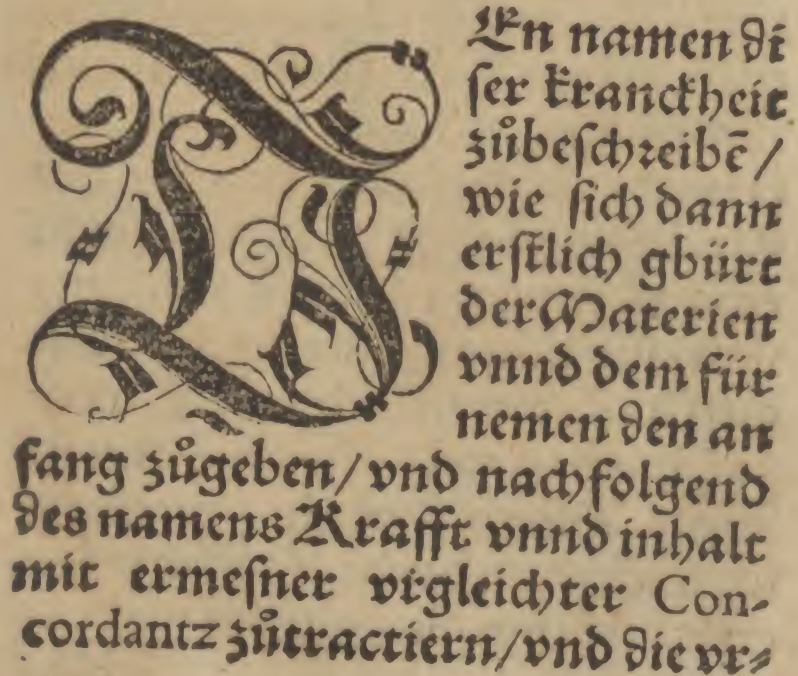 DEn namen di
ser kranckheit
zůbeschreibē/
wie sich dann
erstlich gbürt
der Materien
vnnd dem für
nemen den an
fang zůgeben/vnd nachfolgend
des namens Krafft vnnd inhalt
mit ermeſner vrgleichter Con-
cordantz zůtractiern/vnd die vr⸗